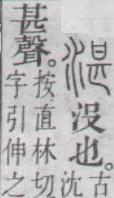 湛
沒也。
古
沈
甚聲。
按直林切
字引伸之